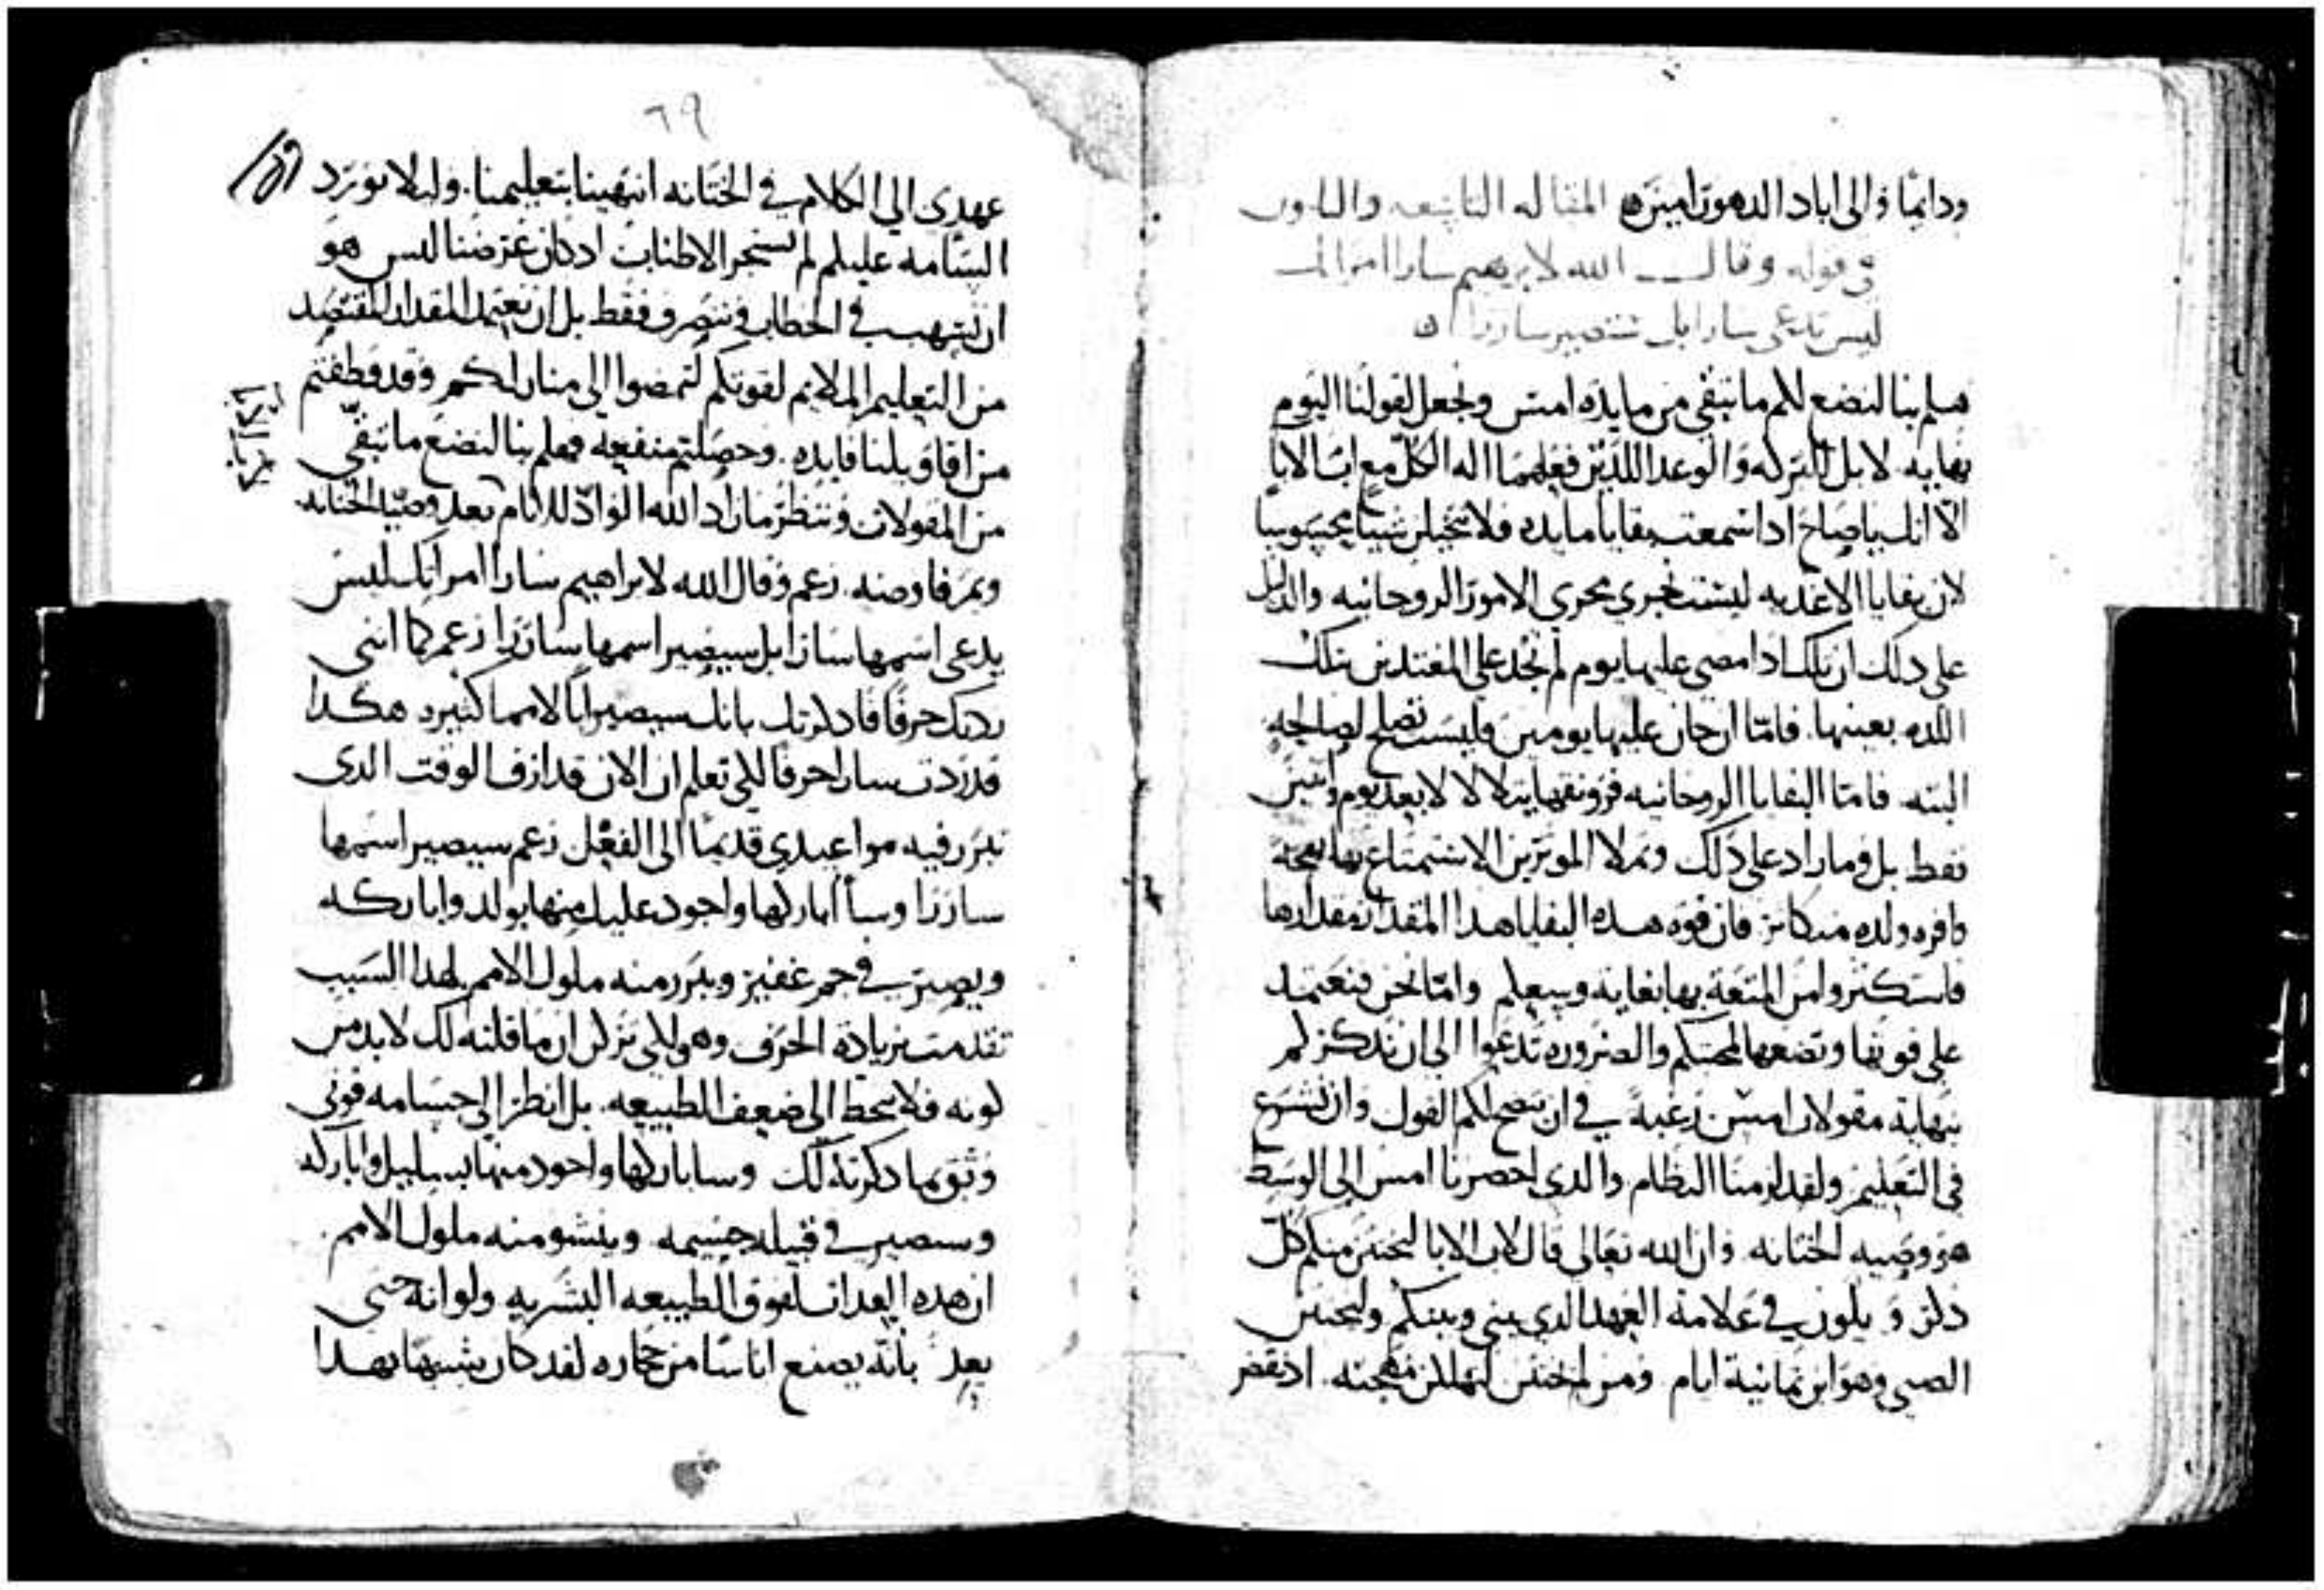 ودايمًا والى اباد الدهور امين المقاله التاسعه والثلثون
في قوله وقال الله لابرهيم سارا امراتك
ليس تدعى سارا بل ستصير ساررا
هلم بنا لنضع لكم ما تبقى من مايده امس ونجعل لقولنا اليوم
نهايه لا بل البركه والوعد اللذين فعلهما اله الكل مع اب الابا
الا انك ياصاح اذا سمعت بقايا مايده فلا تتخيلن شيئا محسوسا
لان بقايا الاغديه ليست تجري مجرى الامور الروحانيه والدليل
على دلك ان تلك ادا مضى عليها يوم لم تجد على المغتدين بتلك
اللده بعينها فامّا ان جاز عليها يومين فليست تصلح لصالحه
البته فامّا البقايا الروحانيه فرونقها يتلالا لا بعد يوم واثنين
فقط بل وما زاد على ذلك وتملا الموثرين الاستمتاع بها بهجه
وافره ولده فان قوه هده البقايا هدا المقدار مقدارها
فاستكثروا من المتعة بها بغايه وسعكم وامّا نحن فنعتمد
على قوتها ونضعها لمحبتكم والضروره تدعوا الى ان نذكر لكم
نهاية مقولات امس رغبة في ان يتضح لكم القول وان نشرع
في التعليم ولقد لزمنا النظام والدي احضرنا امس الى الوسط
هو وصيه الختانه وان الله تعالى قال لاب الابا ليختتن منكم كل
دكر ويكون في علامة العهد الدي بيني وبينكم وليختتن
الصبي وهو ابن ثمانية ايام ومن لم يختتن لتهلكن مهجته اد نقض
٦٩
عهدي الى الكلام في الختانه انتهينا بتعليمنا وليلا نورد
السامه عليكم لم نستجر الاطناب اد كان غرضنا ليس هو
ان نسهب في الخطاب وننصرف فقط بل ان نعتمد المقدار المقتصد
من التعليم الملايم لقوتكم لتمضوا الى منازلكم وقد قطفتم
من اقاويلنا فايده وحصلتم منفعه فهلم بنا لنضع ما تبقّى
من المقولات وننظر مازاد الله الوادّ للانام بعد وصيه الختانه
وثمر فاوضه زعم وقال الله لابراهيم سارا امراتك ليس
يدعى اسمها سارا بل سيصير اسمها سارّرا زعم كما انني
زدتك حرفًا فادكرتك بانك سيصير ابًا لامما كثيره هكدا
قد زدت سارا حرفا لكي تعلم ان الان قد ازف الوقت الدي
تبرز فيه مواعيدي قديمًا الى الفعل زعم سيصير اسمها
سارّرا وسا اباركها واجود عليك منها بولد واباركه
ويصير في جم غفير ويبرز منه ملوك الامم لهدا السبب
تقدمت بزيادة الحرف وهو لكي تركن ان ما قلته لك لابد من
كونه فلا تتحط الى ضعف الطبيعه بل انظر الى جسامه قوتي
وثق بما دكرته لك وسا باركها واجود منها بسليل واباركه
وسيصير في قبيله جسيمه وينشو منه ملوك الامم
ان هده العدات لفوق الطبيعه البشريه ولو انه حتى
يعد بانه يصنع اناسًا من حجاره لقد كان يشبها بهدا